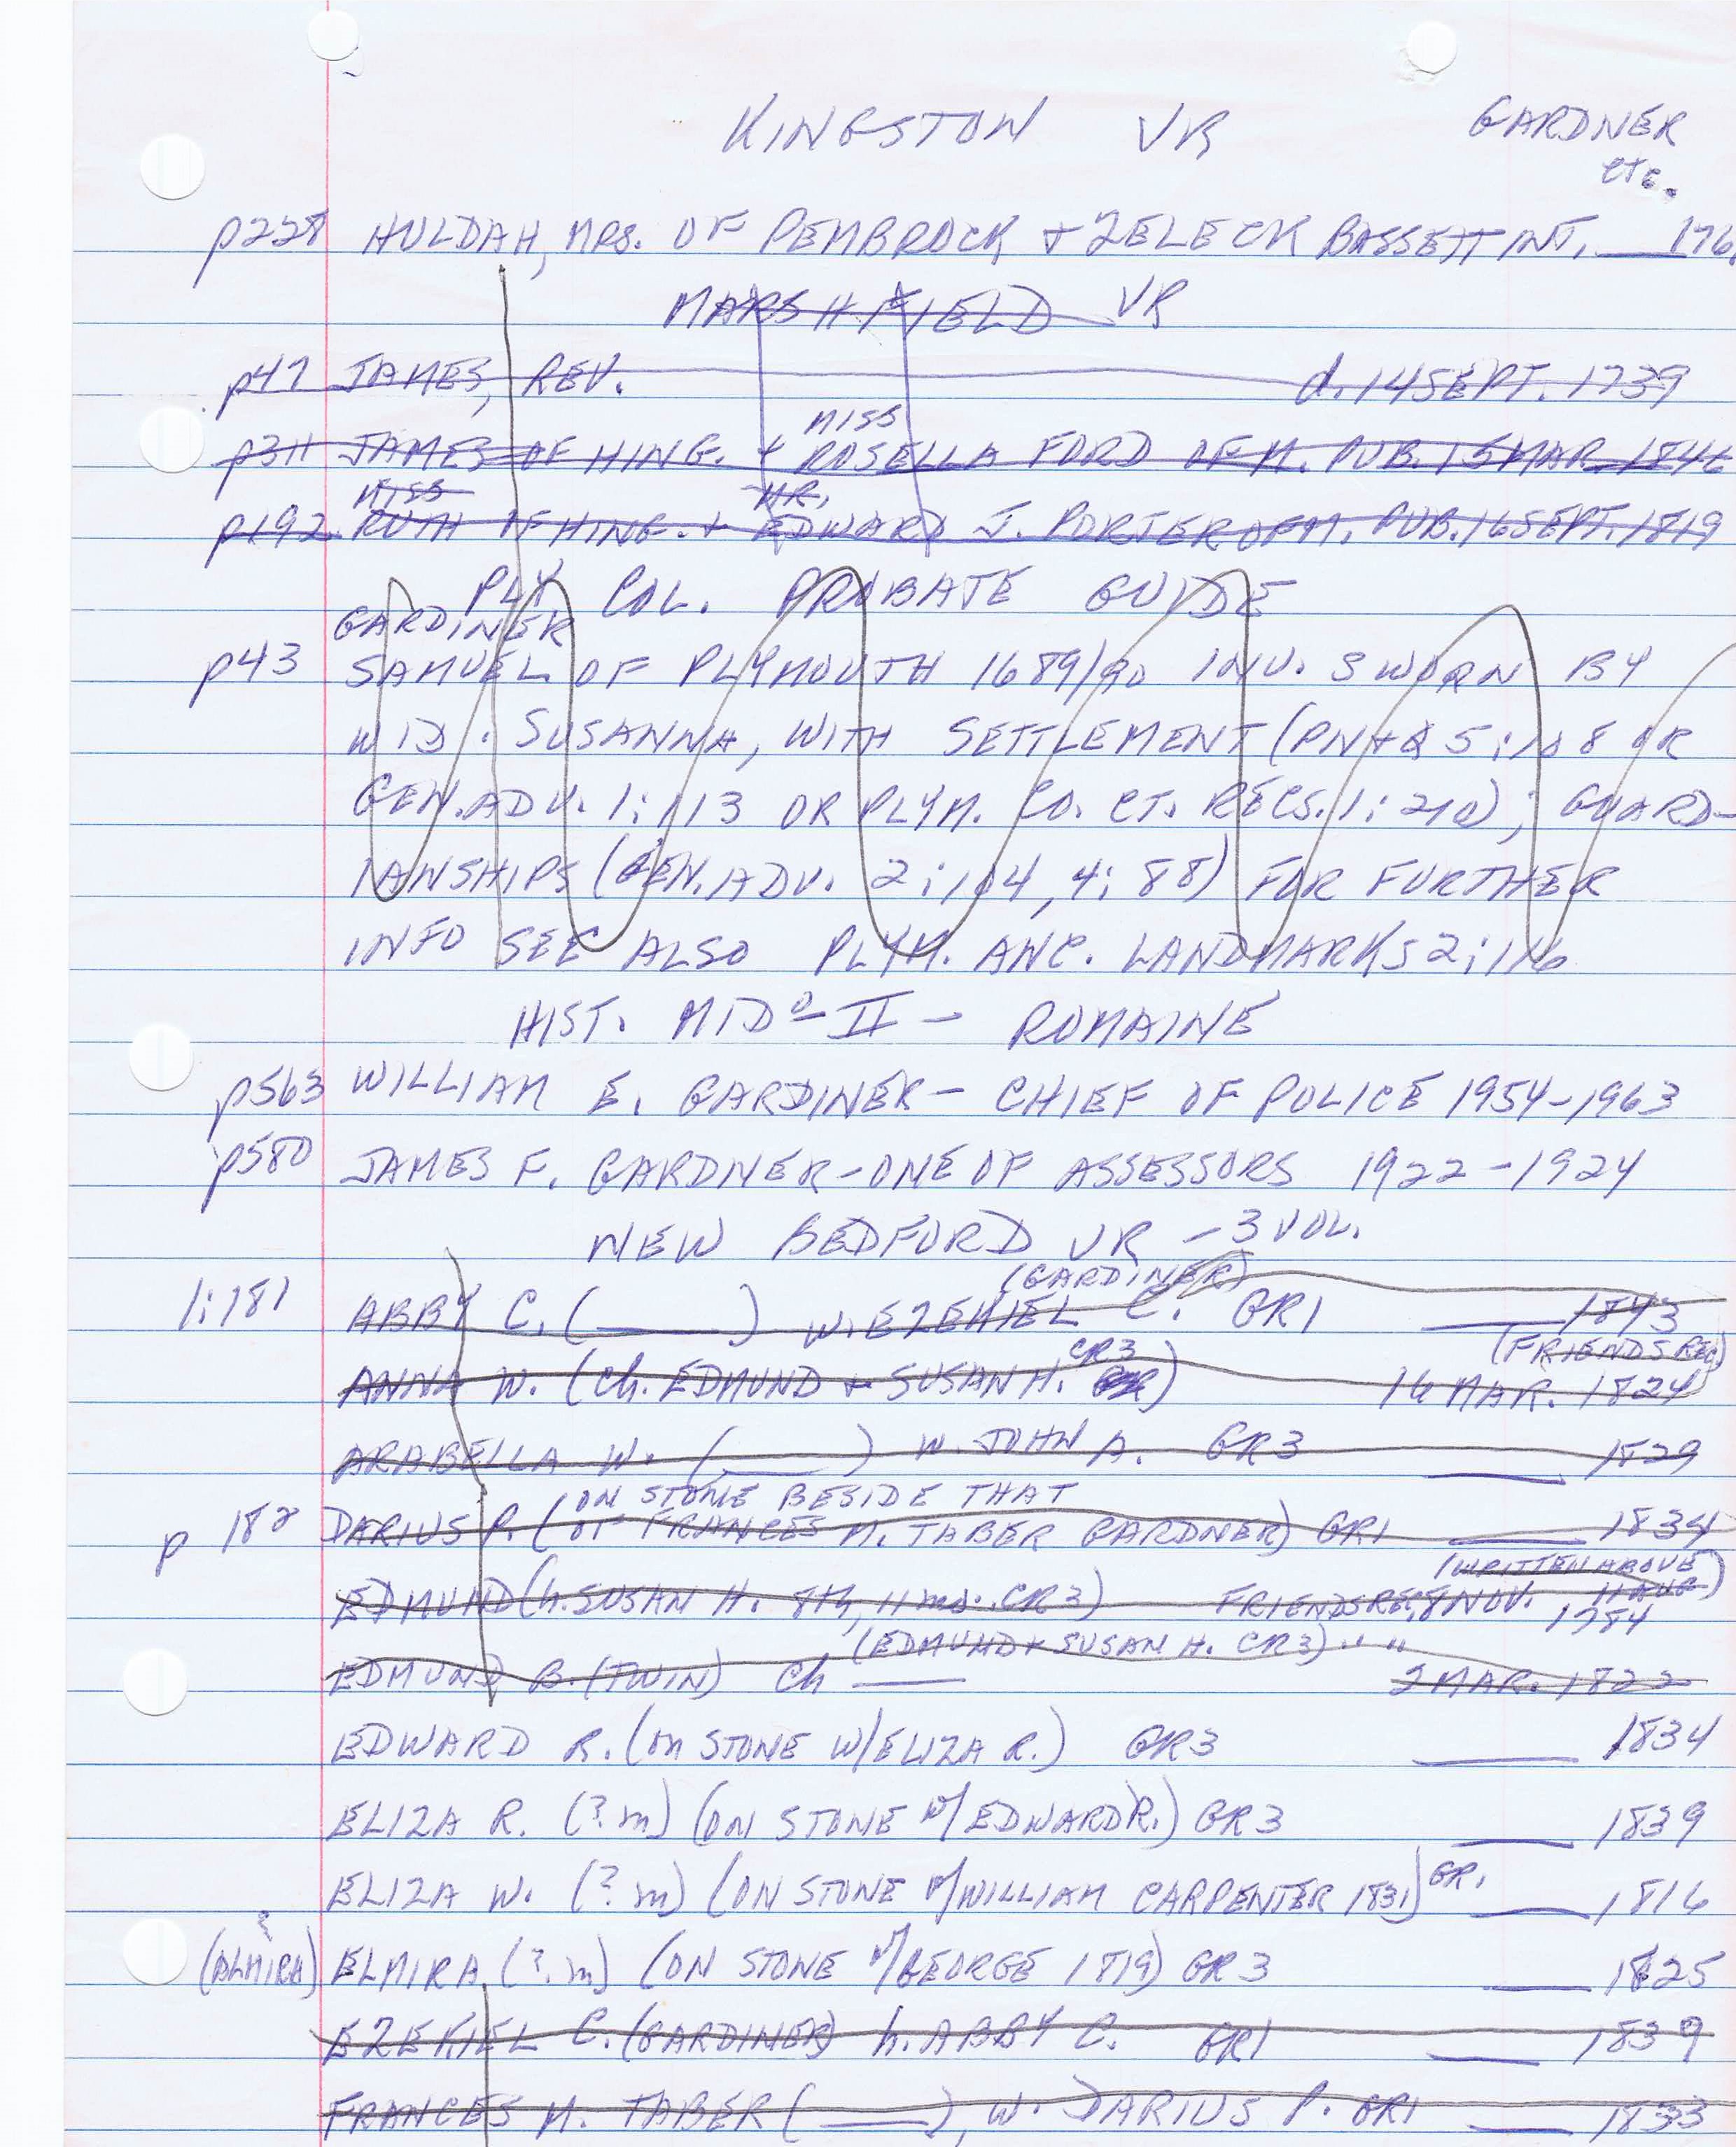 KINGSTON VR GARDNER
etc.
p228 HULDAH, MRS. OF PEMBROCK + ZELECK BASSETT INT. ___ 176
MARSHFIELD VR
p47 JAMES, REV. d. 14 SEPT. 1739
MISS
p311 JAMES OF HING. + ROSELLA FORD OF M. PUB. 15 MAR. 1846
MISS MR.
p192 RUTH OF HING. + EDWARD J. PORTER OF M. PUB. 16 SEPT. 1819
PLY COL. PROBATE GUIDE
GARDINER
p43 SAMUEL OF PLYMOUTH 1689/90 INV. SWORN BY
WID. SUSANNA, WITH SETTLEMENT (PN+Q 5:108 OR
GEN. ADV. 1:113 OR PLYM. CO. CT. RECS. 1:210); GUARD-
IANSHIPS (GEN. ADV. 2:104, 4:88) FOR FURTHER
INFO SEE ALSO PLYM. ANC. LANDMARKS 2:116
HIST. MIDº II - ROMAINE
p563 WILLIAM E. GARDINER - CHIEF OF POLICE 1954-1963
p580 JAMES F. GARDNER - ONE OF ASSESSORS 1922-1924
NEW BEDFORD VR - 3 VOL.
(GARDINER)
1:181 ABBY C. (___) w. EZEKIEL C. GR1 ___ 1843
CR3 (FRIENDS REC)
ANNA W. (ch. EDMUND + SUSAN H.) 16 MAR. 1824
ARABELLA W. (___) w. JOHN A. GR3 ___ 1829
(ON STONE BESIDE THAT
p 182 DARIUS P. OF FRANCES M. TABER GARDNER) GR1 ___ 1834
(WRITTEN ABOVE
EDMUND (h. SUSAN H. 8th, 11 mo. CR3) FRIENDS REC, 8 NOV. 11 AUG)
1784
(EDMUND + SUSAN H. CR3) " "
EDMUND B. (TWIN) Ch ___ 2 MAR. 1822
EDWARD R. (on STONE W/ELIZA R.) GR3 ___ 1834
ELIZA R. (? m) (ON STONE W/EDWARD R.) GR3 ___ 1839
ELIZA W. (? m) (ON STONE W/WILLIAM CARPENTER 1831) GR1 ___ 1816
(ALMIRA) ELMIRA (? m) (ON STONE W/GEORGE 1819) GR3 ___ 1825
EZEKIEL C. (GARDINER) h. ABBY C. GR1 ___ 1839
FRANCES M. TABER (___), w. DARIUS P. GR1 ___ 1833